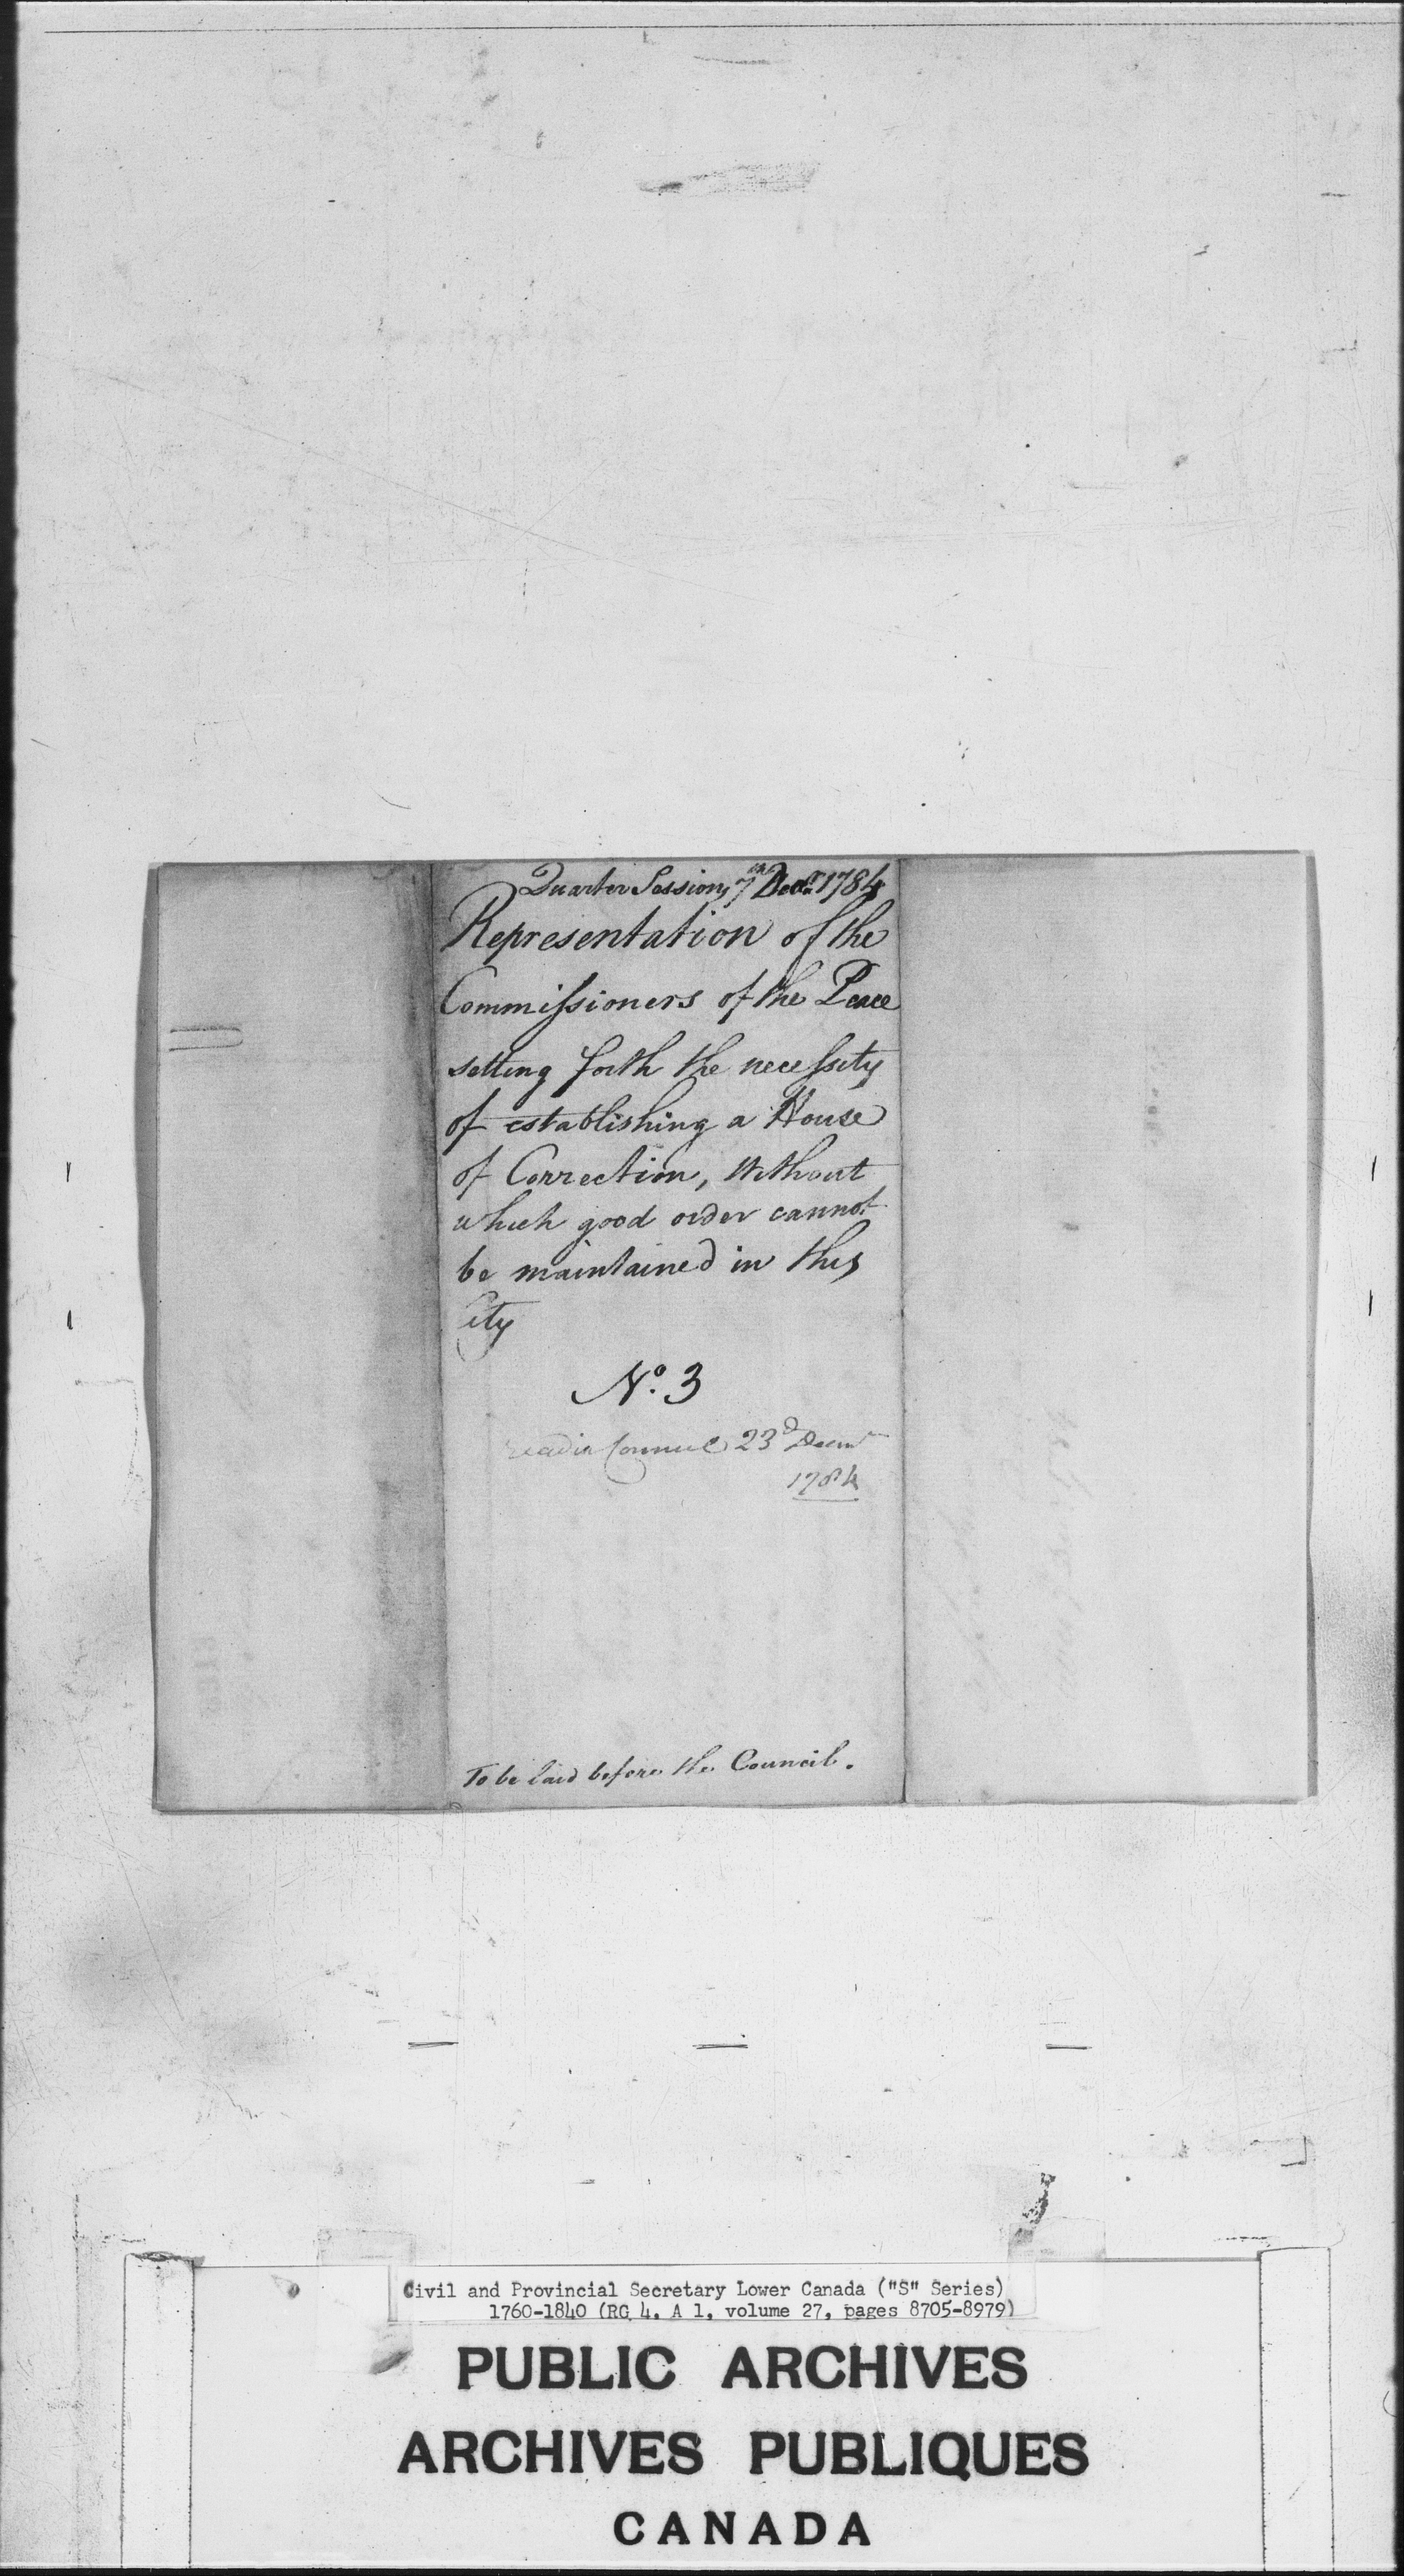 Quarter Sessions 7th Decr. 1784
Representation of the
Commissioners of the Peace
setting forth the necessity
of establishing a House
of Correction, Without
which good order cannot
be maintained in this
City
No. 3
read in Council 23d Decmr
1784
To be laid before the Council.
Civil and Provincial Secretary Lower Canada ("S" Series)
1760-1840 (RG 4, A 1, volume 27, pages 8705-8979)
PUBLIC ARCHIVES
ARCHIVES PUBLIQUES
CANADA